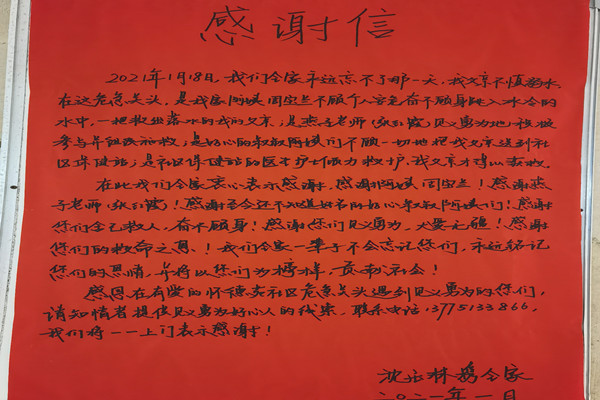 感谢信
2021年1月18日，我们全家永远忘不了那一天，我父亲不慎落水
在这危急关头，是我家阿姨周宝兰不顾个人安危奋不顾身跳入冰冷的
水中，一把救坐落水的我的父亲；是燕子老师（张红霞）见义勇为地积极
参与并组织和救；是好心的叔叔阿姨们不顾一切地把我父亲送到社
区保健站；是社区保健站的医生护士倾力救护，我父亲才得以获救。
在此我们全家衷心表示感谢，感谢阿姨周宝兰！感谢燕
子老师（张红霞）！感谢至今还不知道姓名的好心叔叔阿姨们！感谢
您们舍己救人，奋不顾身！感谢您们见义勇为，大爱无疆！感谢
您们的救命之恩！我们全家一辈子不会忘记您们，永远铭记
您们的恩情，并将以您们为榜样，贡献社会！
感恩在有爱的怀德苑社区危急关头遇到见义勇为的您们，
请知情者提供见义勇为好心人的线索，联系电话13775133866，
我们将一一上门表示感谢！
沈 林携全家
二〇二一年一月